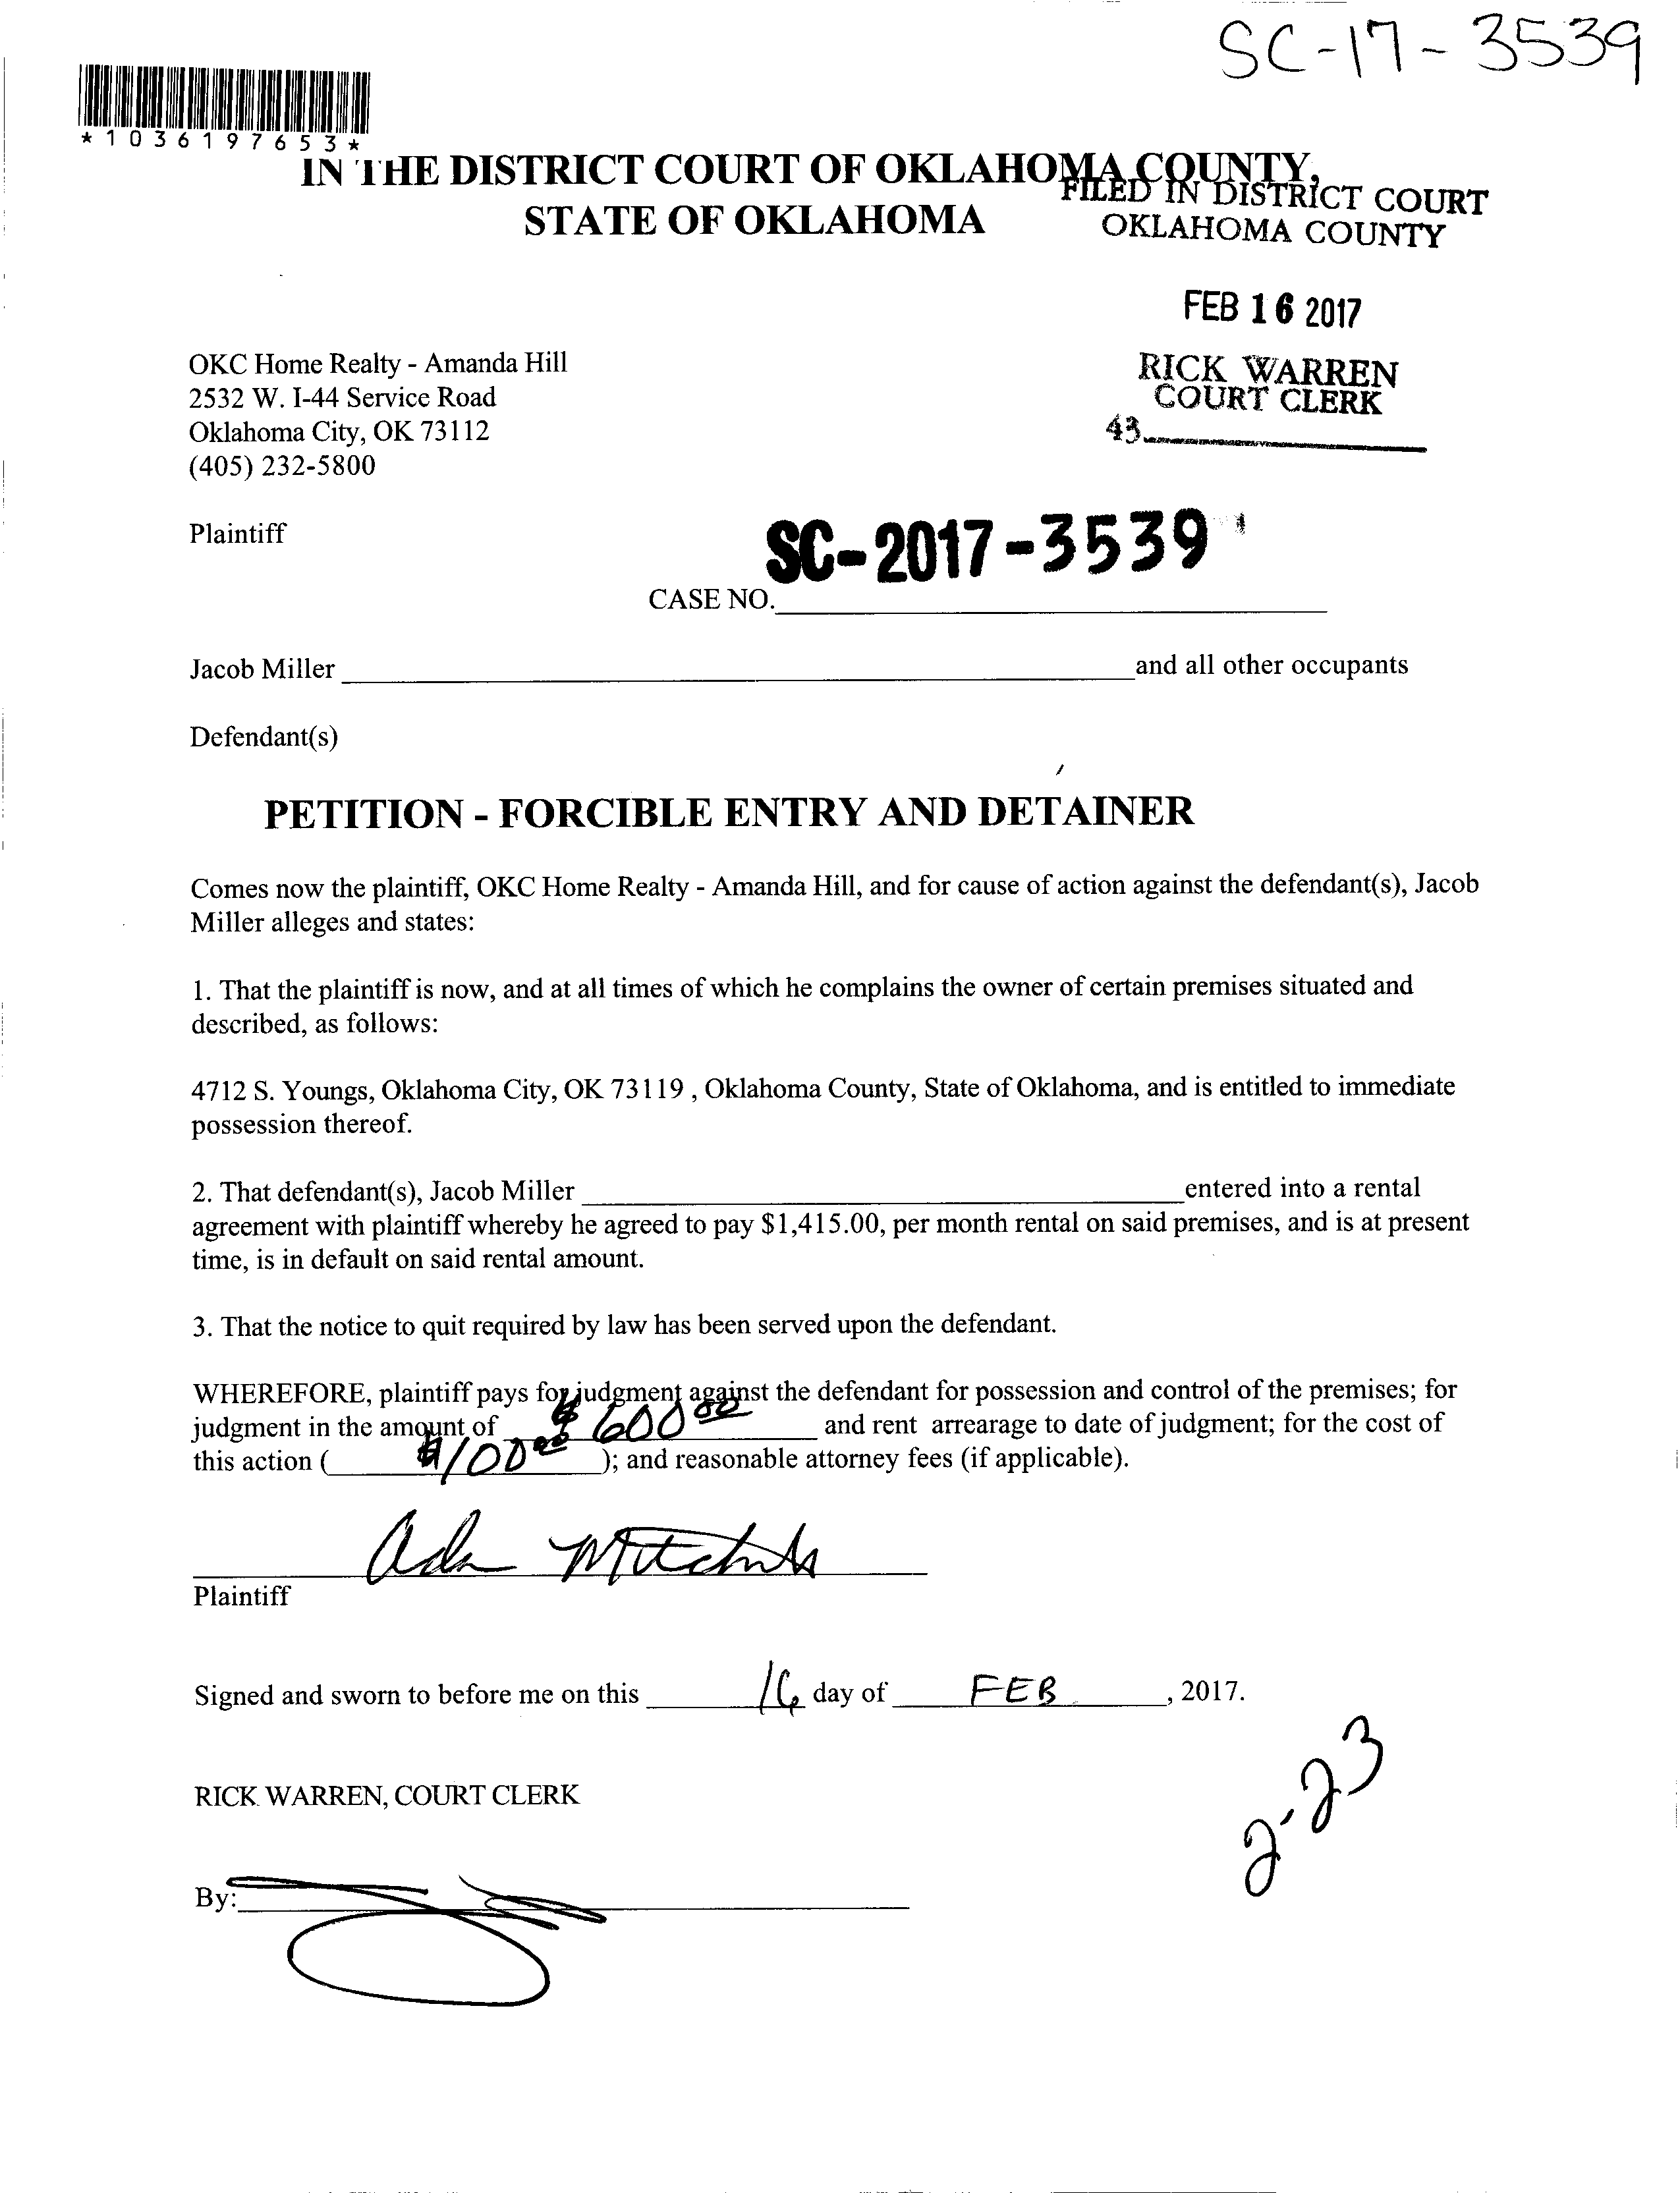 SC-17-3539
*1036197653*
IN THE DISTRICT COURT OF OKLAHOMA COUNTY,
STATE OF OKLAHOMA
FILED IN DISTRICT COURT
OKLAHOMA COUNTY
FEB 16 2017
RICK WARREN
COURT CLERK
43
OKC Home Realty - Amanda Hill
2532 W. I-44 Service Road
Oklahoma City, OK 73112
(405) 232-5800
Plaintiff
SC-2017-3539
CASE NO.
Jacob Miller and all other occupants
Defendant(s)
PETITION - FORCIBLE ENTRY AND DETAINER
Comes now the plaintiff, OKC Home Realty - Amanda Hill, and for cause of action against the defendant(s), Jacob
Miller alleges and states:
1. That the plaintiff is now, and at all times of which he complains the owner of certain premises situated and
described, as follows:
4712 S. Youngs, Oklahoma City, OK 73119 , Oklahoma County, State of Oklahoma, and is entitled to immediate
possession thereof.
2. That defendant(s), Jacob Miller entered into a rental
agreement with plaintiff whereby he agreed to pay $1,415.00, per month rental on said premises, and is at present
time, is in default on said rental amount.
3. That the notice to quit required by law has been served upon the defendant.
WHEREFORE, plaintiff pays for judgment against the defendant for possession and control of the premises; for
judgment in the amount of $600.00 and rent arrearage to date of judgment; for the cost of
this action ( $100.00 ); and reasonable attorney fees (if applicable).
Plaintiff
Signed and sworn to before me on this 16 day of FEB , 2017.
2-23
RICK WARREN, COURT CLERK
By: